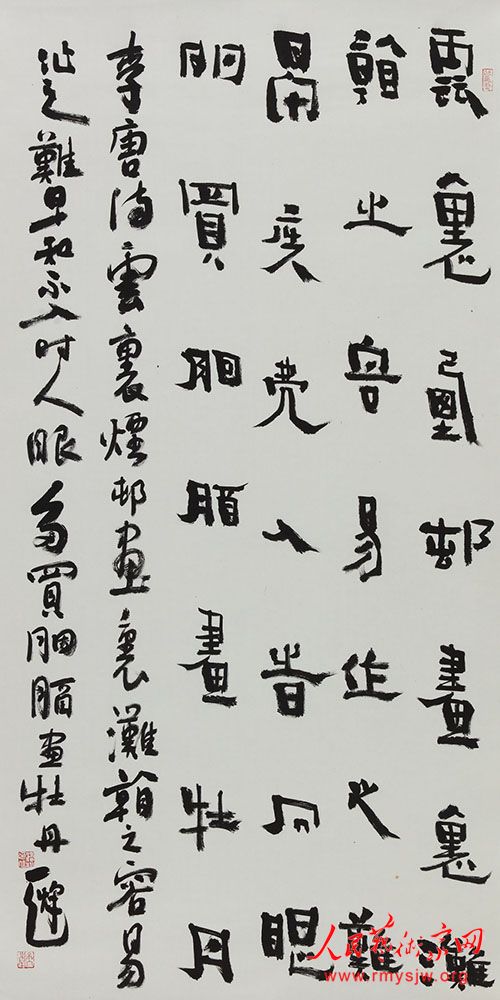 雲裏煙邨畫裏灘
看之容易作之難
早知不入時人眼
多買胭脂畫牡丹
李唐詩雲裏煙邨畫裏灘看之容易
作之難早知不入時人眼多買胭脂畫牡丹
人民艺术家网
www.rmysjw.org